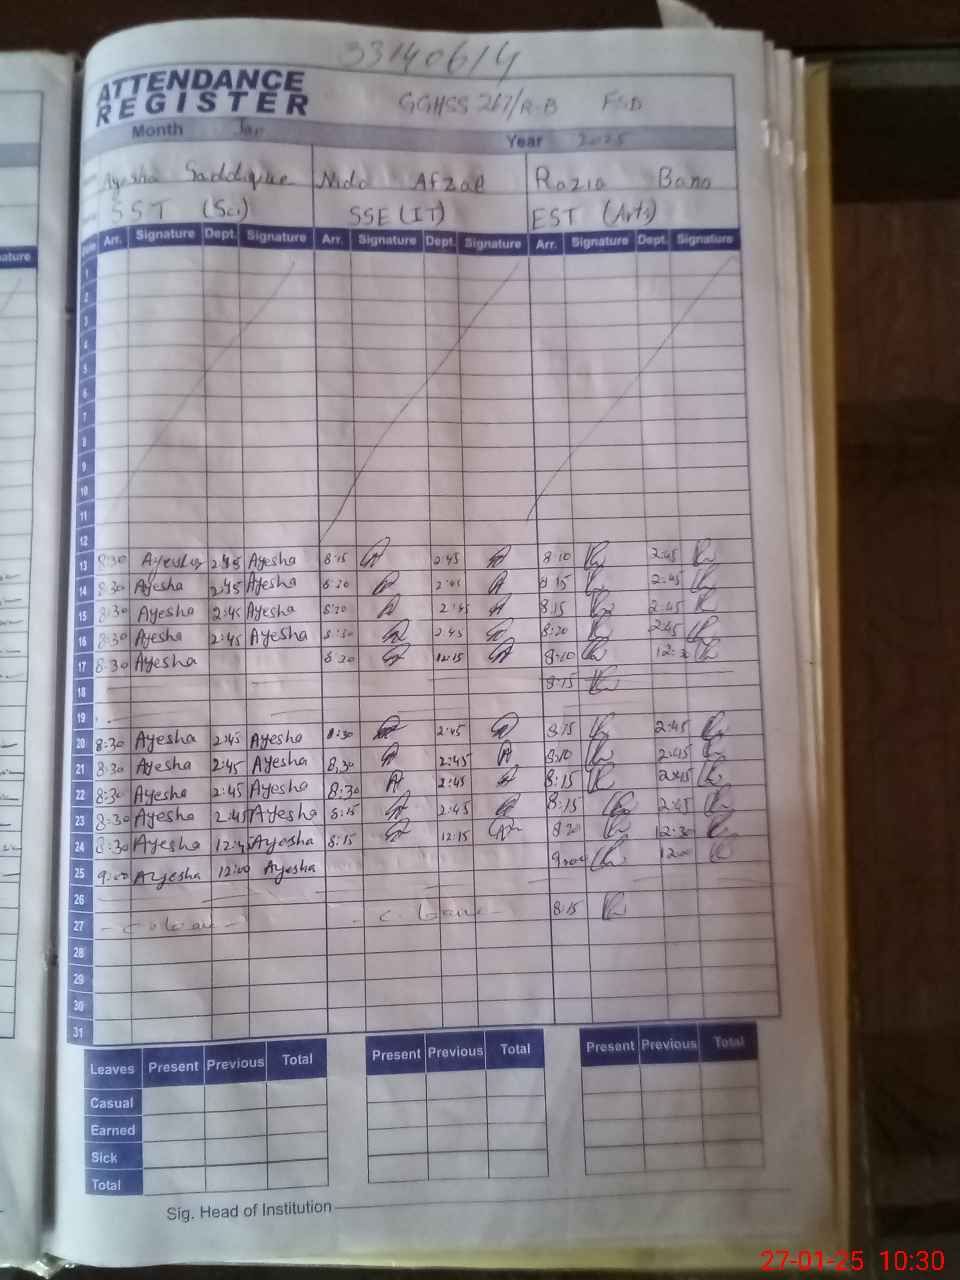 33140614
ATTENDANCE
REGISTER
GGHSS 267/R-B FSD
Month Jan Year 2025
Ayesha Saddique Nida Afzal Razia Bano
SST (Sci) SSE (IT) EST (Arts)
Date Arr. Signature Dept. Signature Arr. Signature Dept. Signature Arr. Signature Dept. Signature
1
2
3
4
5
6
7
8
9
10
11
12
13 8:30 Ayesha 2:45 Ayesha 8:15 2:45 8:10 2:45
14 8:30 Ayesha 2:45 Ayesha 8:20 2:45 8:15 2:45
15 8:30 Ayesha 2:45 Ayesha 8:20 2:45 8:15 2:45
16 8:30 Ayesha 2:45 Ayesha 8:30 2:45 8:20 2:45
17 8:30 Ayesha 8:20 12:15 8:10 12:30
18 8:15
19
20 8:30 Ayesha 2:45 Ayesha 8:30 2:45 8:15 2:45
21 8:30 Ayesha 2:45 Ayesha 8:30 2:45 8:10 2:45
22 8:30 Ayesha 2:45 Ayesha 8:30 2:45 8:15 2:45
23 8:30 Ayesha 2:45 Ayesha 8:15 2:45 8:15 2:45
24 8:30 Ayesha Ayesha 8:15 12:15 12:30
25 9:00 Ayesha 12:00 Ayesha 9:00 12:00
26
27 - c. leave - - c. leave - 8:15
28
29
30
31
Leaves Present Previous Total Present Previous Total Present Previous Total
Casual
Earned
Sick
Total
Sig. Head of Institution
27-01-25 10:30